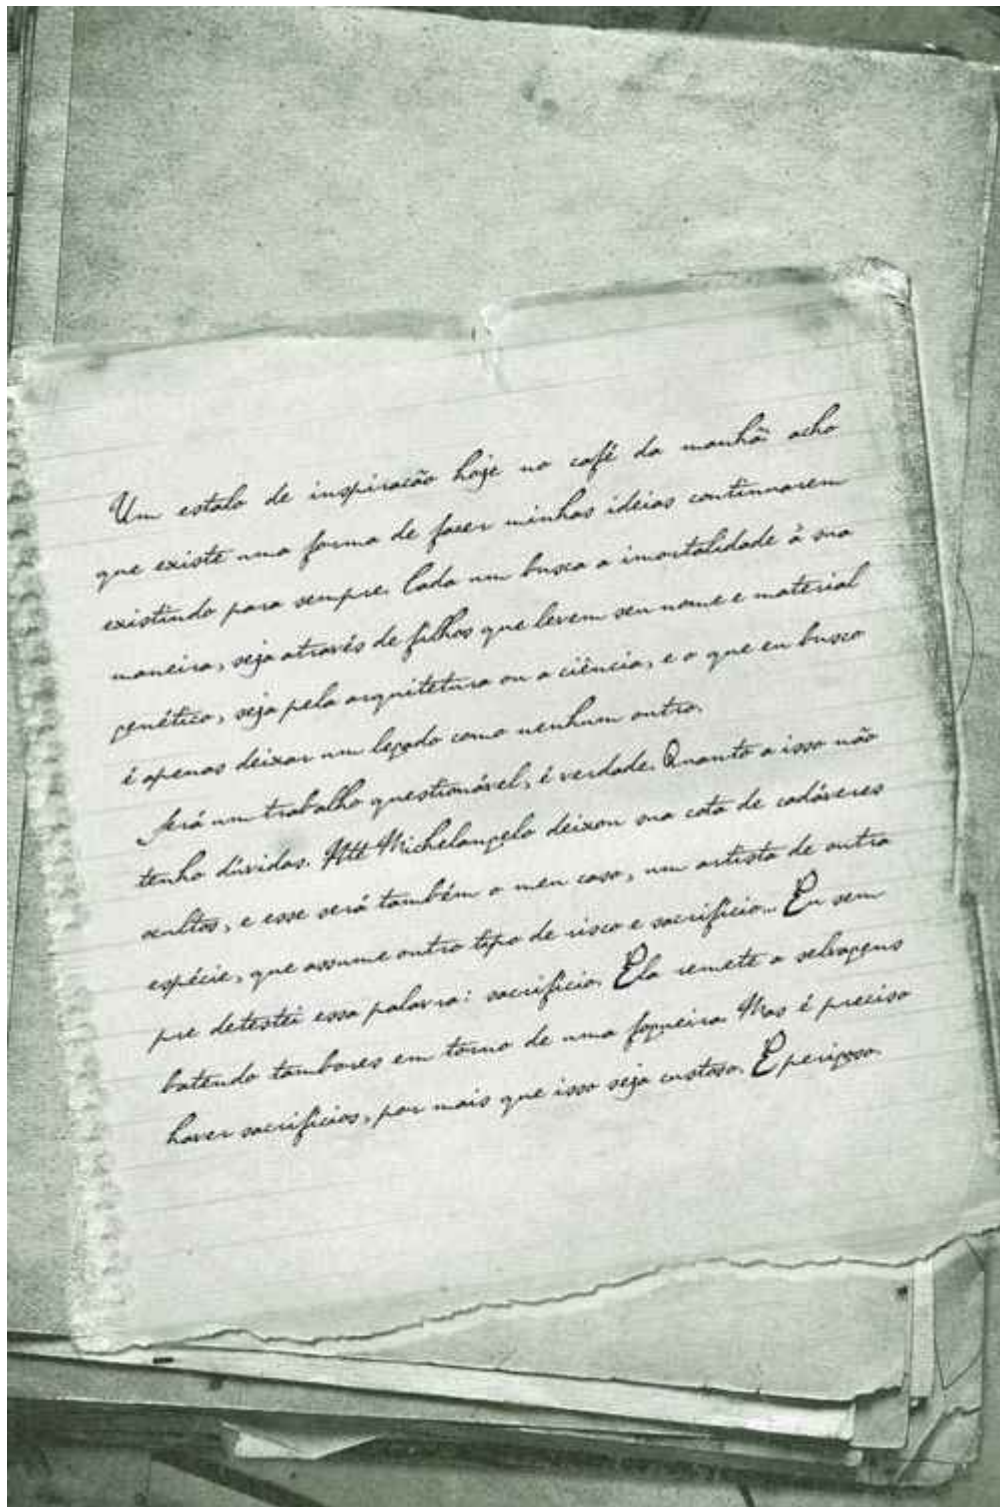 Um estalo de inspiração hoje no café da manhã: acho
que existe uma forma de fazer minhas ideias continuarem
existindo para sempre. Cada um busca a imortalidade à sua
maneira, seja através de filhos que levem seu nome e material
genético, seja pela arquitetura ou a ciência, e o que eu busco
é apenas deixar um legado como nenhum outro.
Será um trabalho questionável, é verdade. Quanto a isso não
tenho dúvidas. Até Michelangelo deixou sua cota de cadáveres
ocultos, e esse será também o meu caso, um artista de outra
espécie, que assume outro tipo de risco e sacrifício... Eu sem
pre detestei essa palavra: sacrifício. Ela remete a selvagens
batendo tambores em torno de uma fogueira. Mas é preciso
haver sacrifícios, por mais que isso seja custoso. E perigoso.